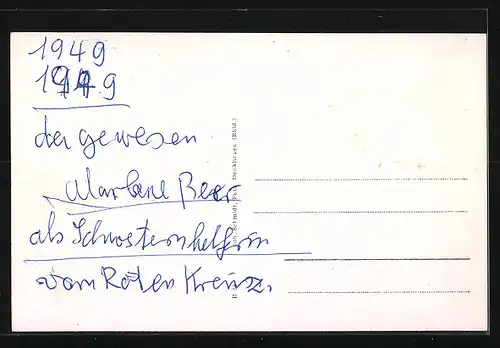 1949
1949
da gewesen
Marlene Beer
als Schwesternhelferin
vom Roten Kreuz.